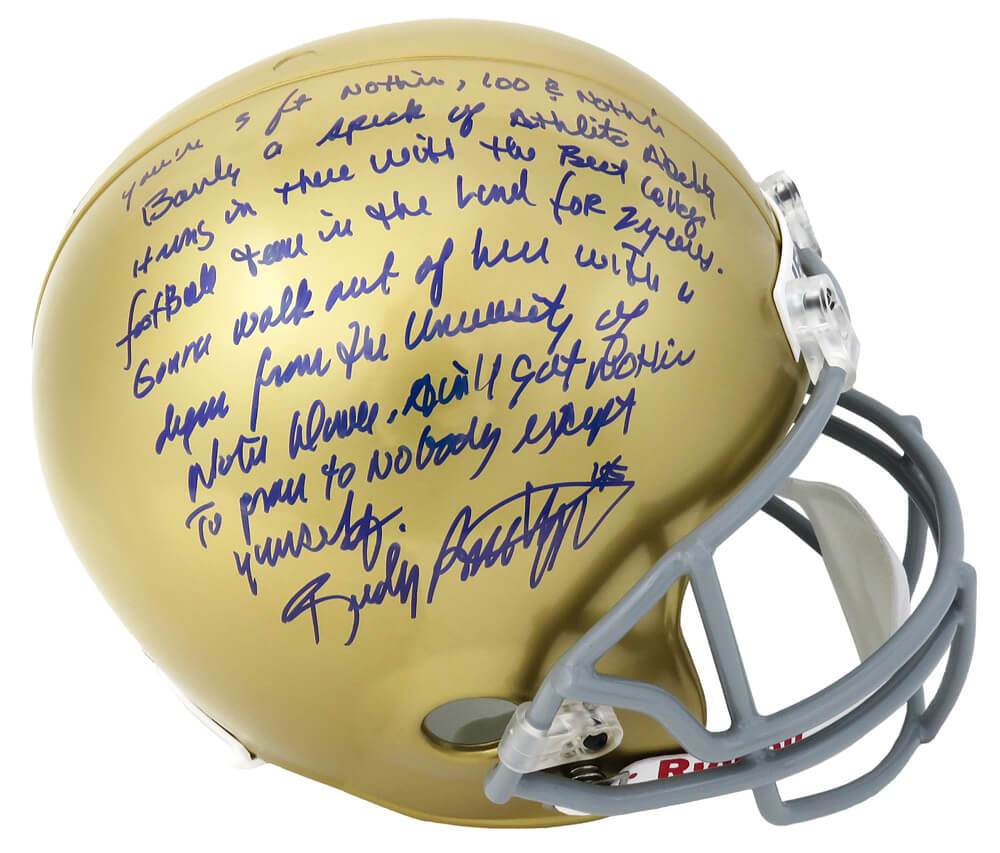 you're 5 ft Nothin, 100 & Nothin
Barely a speck of Athletic Ability
Hung in there with the Best College
football team in the land for 2 years.
Gonna walk out of here with a
degree from the University of
Notre Dame. Ain't Got Nothin
To prove to Nobody except
yourself.
Rudy Ruettiger 45